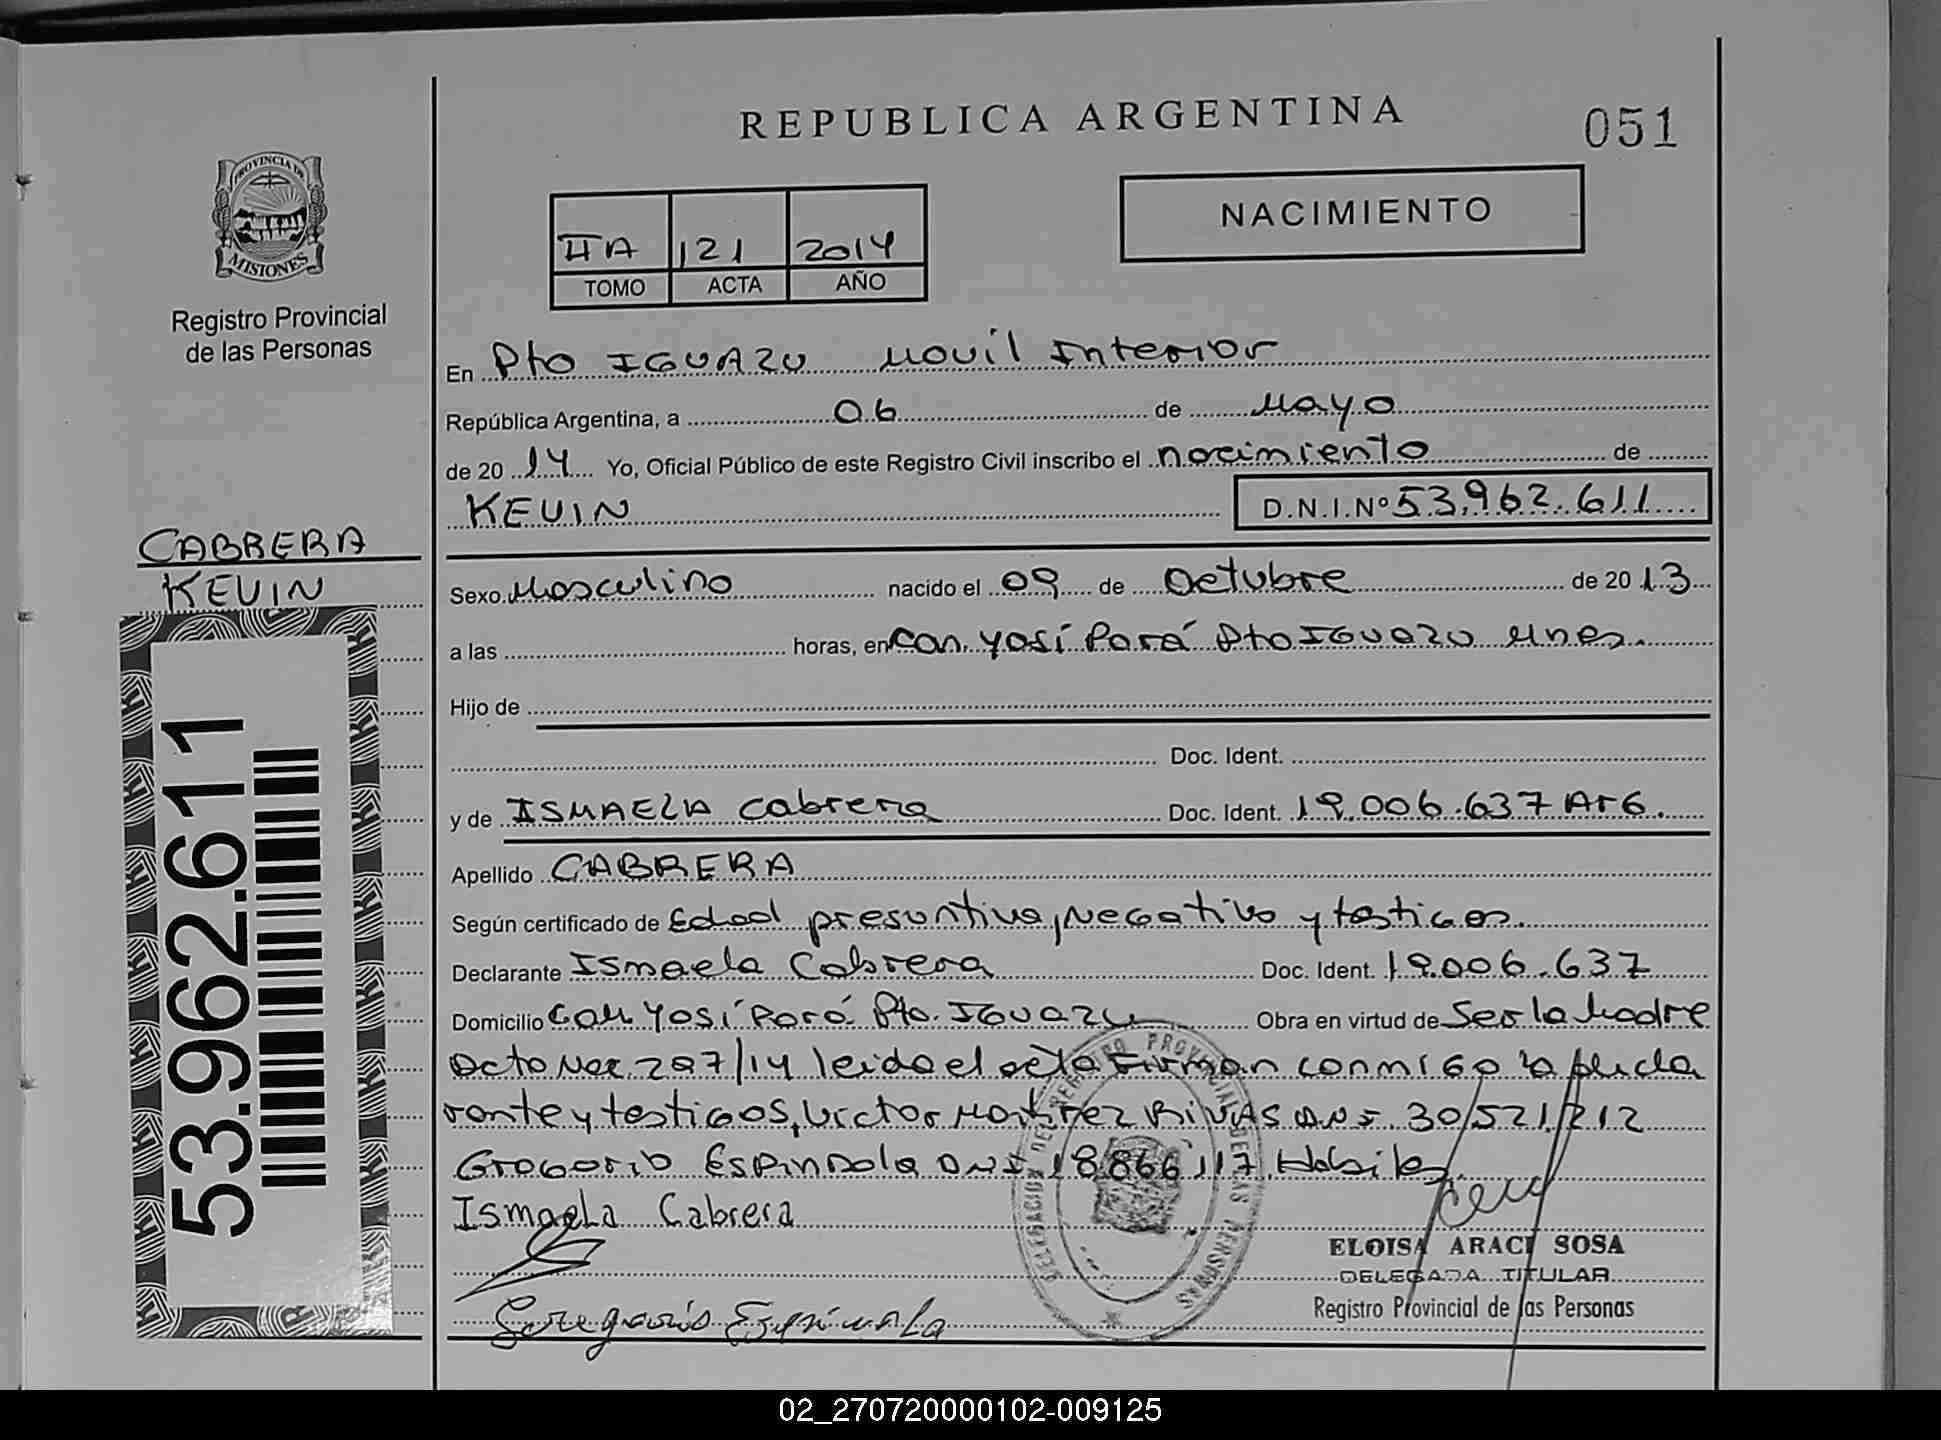 REPUBLICA ARGENTINA
051
PROVINCIA DE
MISIONES
Registro Provincial
de las Personas
NACIMIENTO
IIA 121 2014
TOMO ACTA AÑO
En Pto IGUAZU Movil Interior
República Argentina, a 06 de Mayo
de 2014 Yo, Oficial Público de este Registro Civil inscribo el nacimiento de
KEVIN D.N.I.Nº 53.962.611
CABRERA
KEVIN
53.962.611
Sexo Masculino nacido el 09 de Octubre de 2013
a las horas, en Com. Yosí Pará Pto IGUAZU Mnes.
Hijo de
Doc. Ident.
y de ISMAELA Cabrera Doc. Ident. 19.006.637 ArG.
Apellido CABRERA
Según certificado de Edad presuntiva, NeGativo y testiGos.
Declarante Ismaela Cabrera Doc. Ident. 19.006.637
Domicilio Com Yosí Pará Pto. IGuazu Obra en virtud de Ser la Madre
Acto Nac 297/14 leida el acta Firman conmiGo la decla
rante y testiGos, Victor Martinez RIVAS DNI 30/521.212
GreGorio EspinDola DNI 18.866.117 Habiles
Ismaela Cabrera
DELEGACION DEL REGISTRO PROVINCIAL DE LAS PERSONAS
ELOISA ARACI SOSA
DELEGADA TITULAR
Registro Provincial de las Personas
Gregorio Espinola
02_270720000102-009125